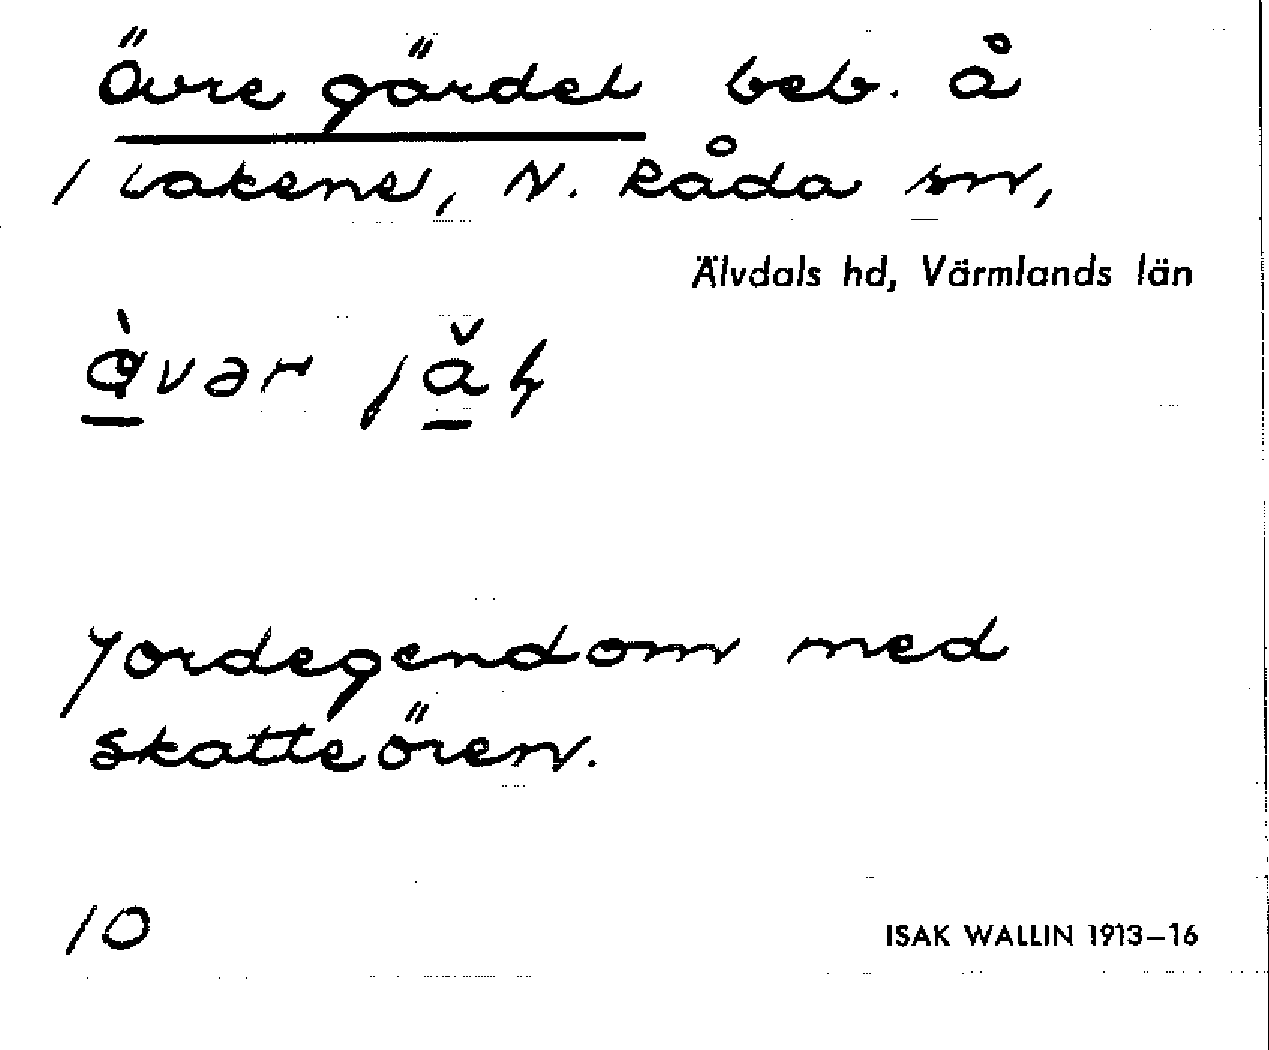 Övre gärdet beb. å
1 vakens, N. Råda sn,
Älvdals hd, Värmlands län
Jordegendom med
skatteören.
10
ISAK WALLIN 1913–16